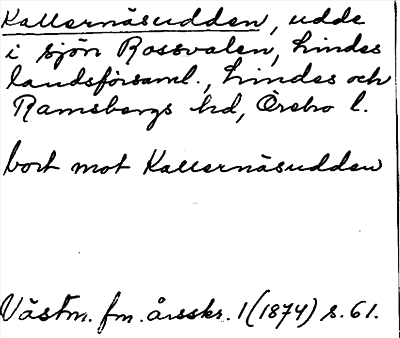 Kallernäsudden, udde
i sjön Rossvalen, Lindes
landsförsaml., Lindes och
Ramsbergs hd, Örebro l.
bort mot Kallernäsudden
Västm. fm. årsskr. 1 (1874) s. 61.